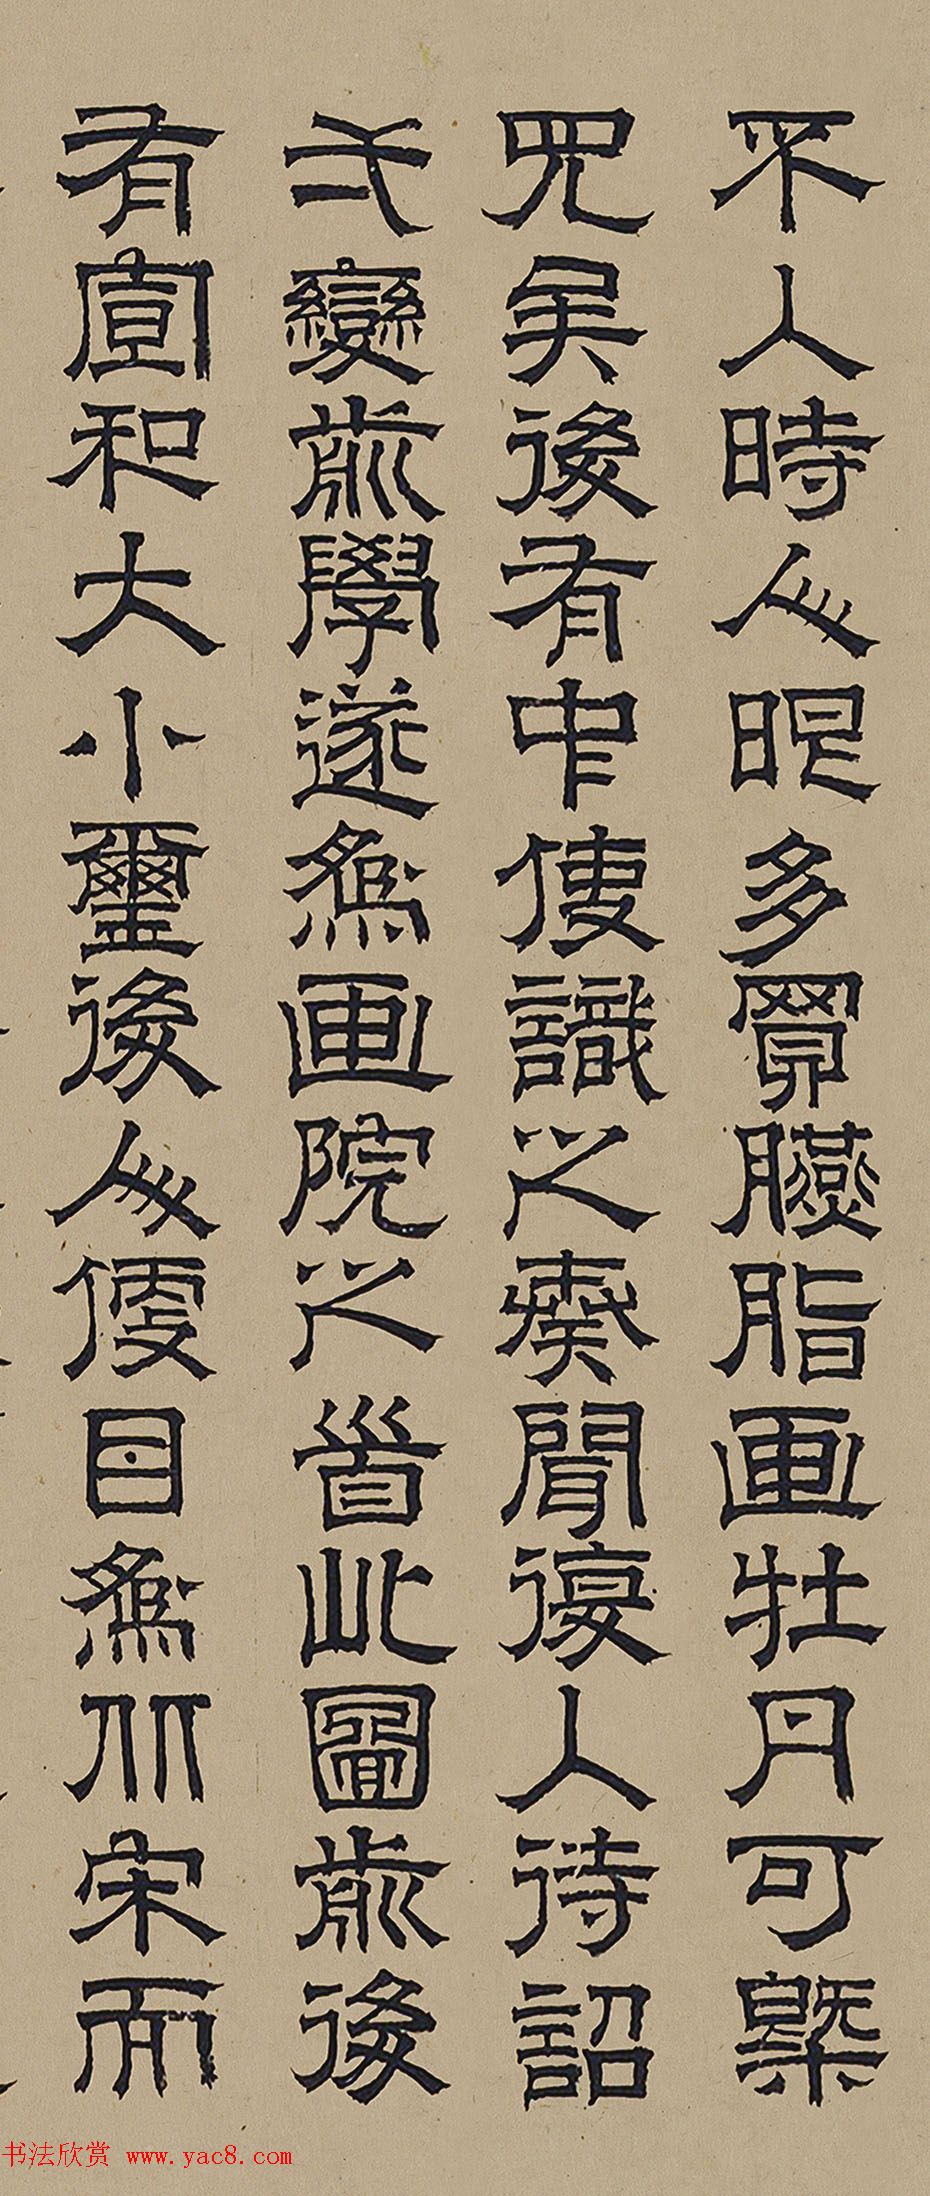 不入時人眼多買臙脂画牡丹可槩
見矣後有中使識之奏聞復入待詔
弌變前學遂為画院之首此圖前後
有宣和大小璽後人便目為北宋而
书法欣赏 www.yac8.com